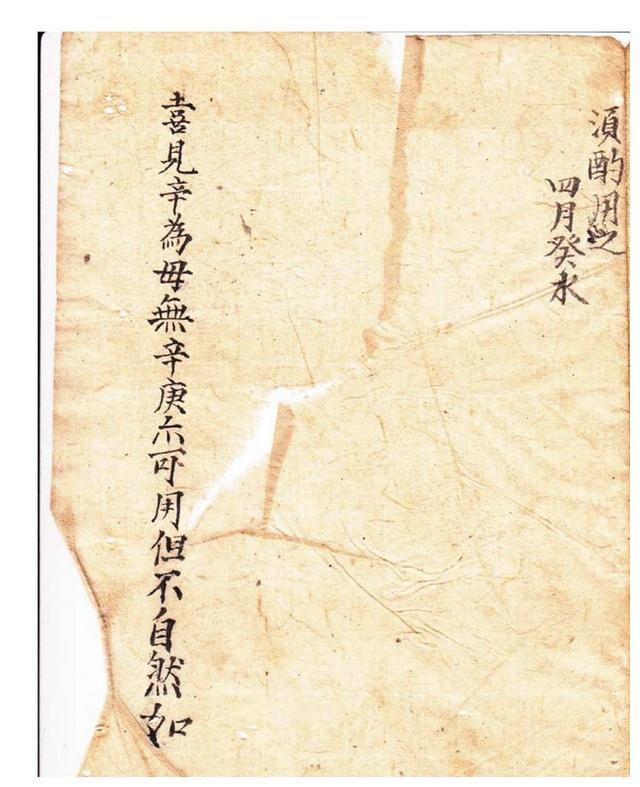 須酌用之
四月癸水
喜見辛為母無辛庚亦可用但不自然如